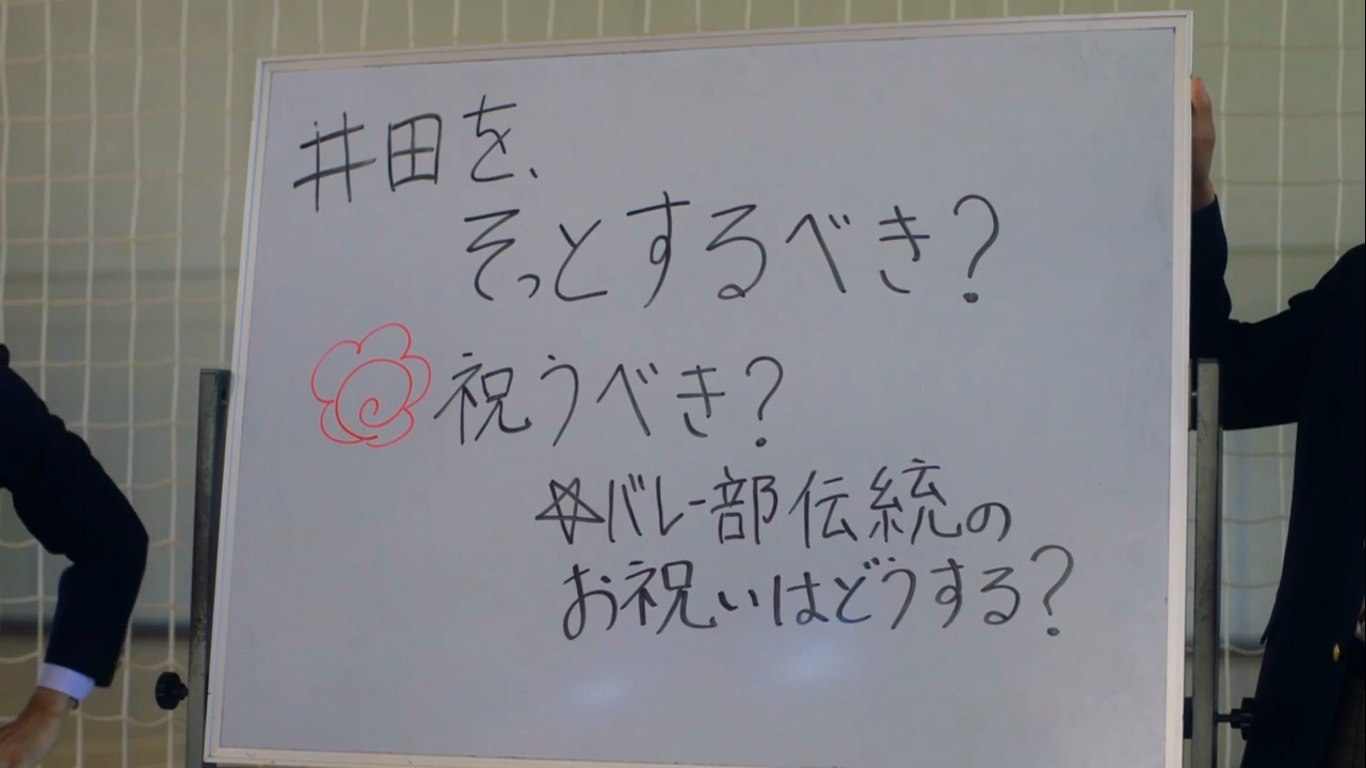 井田を、
そっとするべき?
祝うべき?
☆バレー部伝統の
お祝いはどうする?